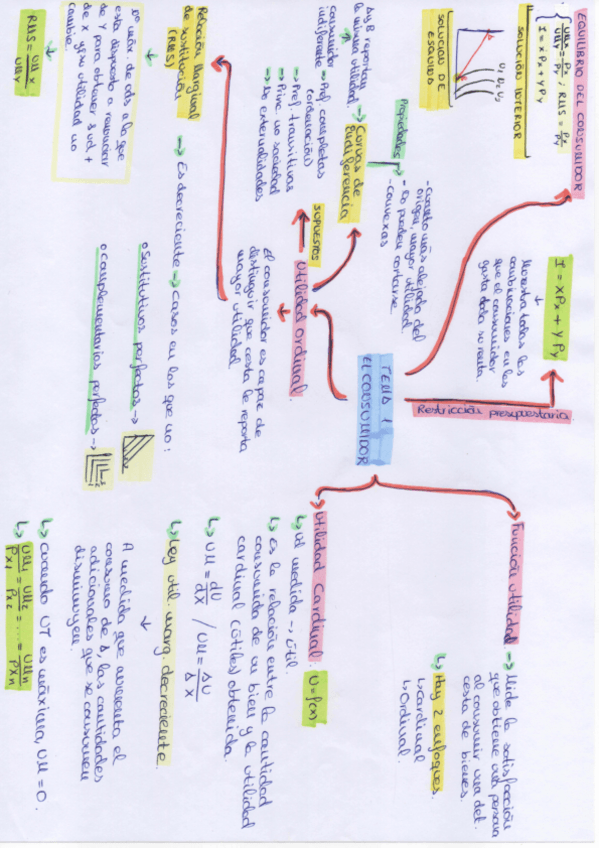 TEMA 1
EL CONSUMIDOR
Función utilidad.
→ Mide la satisfacción
que obtiene una persona
al consumir una det.
cesta de bienes.
↳ Hay 2 enfoques.
↳ Cardinal
↳ Ordinal.
Utilidad Cardinal. U = f(x)
↳ Ud medida → útil.
↳ Es la relación entre la cantidad
consumida de un bien y la utilidad
cardinal (útiles) obtenida.
↳ UM = dU/dX / UM = ΔU/ΔX
↳ Ley util. marg. decreciente.
↓
A medida que aumenta el
consumo de X, las cantidades
adicionales que se consumen
disminuyen.
↳ Cuando UT es máxima, UM = 0.
↳ UM1/PX1 = UM2/PX2 = ... = UMn/PXn
Restricción presupuestaria
I = XPx + YPy
↓
Muestra todas las
combinaciones en las
que el consumidor
gasta toda su renta.
EQUILIBRIO DEL CONSUMIDOR
UMx/UMy = Px/Py ; RMS = Px/Py
I = XPx + YPy
SOLUCIÓN INTERIOR
U1 U2 U3
SOLUCIÓN DE
ESQUINAS
Utilidad Ordinal.
El consumidor es capaz de
distinguir que cesta le reporta
mayor utilidad.
SUPUESTOS
→ Pref. completas
(ordenación)
→ Pref. transitivas
→ Ppio. no saciedad
→ No externalidades
Curvas de
Indiferencia
A y B reportan
la misma utilidad.
consumidor
indiferente
Propiedades
- Cuanto más alejada del
origen, mayor utilidad
- No pueden cortarse
- Convexas
Relación Marginal
de sustitución
(RMS)
→ Es decreciente → Casos en los que no:
o Sustitutivos perfectos →
o Complementarios perfectos →
↓
Nº máx. de uds a la que
esta dispuesto a renunciar
de Y para obtener 1 ud +
de X y su utilidad no
cambie.
RMS = UMx/UMy